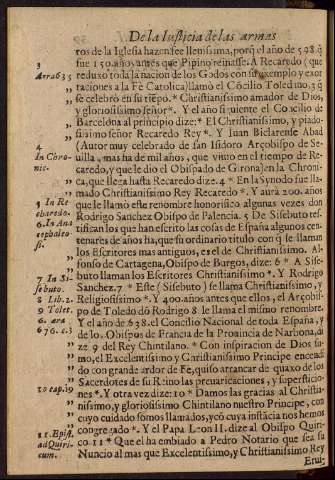 De la Iusticia de las armas
ros de la Iglesia hazen fee llenissima, porq̃ el año de 598. q̃
3 fue 150. años antes que Pipino reinasse. A Recaredo (que
Arra 635 reduxo toda la nacion de los Godos con su exemplo y exor
,, taciones a la Fè Catolica) llamò el Cõcilio Toledano. 3 q̃
,, se celebrò en su tiẽpo. * Christianissimo amador de Dios,
,, y gloriosissimo señor *. Y el año siguiente el Cõcilio de
,, Barcelona al principio dize: * El Christianissimo, y piado-
,, sissimo señor Recaredo Rey *. Y Iuan Biclarense Abad
4 (Autor muy celebrado de san Isidoro Arçobispo de Se-
In Chro- uilla, mas ha de mil años, que viuiò en tiempo de Re-
nic. caredo, y que le diò el Obispado de Girona) en la Chroni-
,, ca, que llega hasta Recaredo dize. 4 * En la Synodo fue lla-
,, mado Christianissimo Rey Recaredo *. Y aurà 200. años
5 In Re que le llamò este renombre honorifico algunas vezes don
cbaredo. Rodrigo Sanchez Obispo de Palencia. 5 De Sisebuto tes-
6. In Ana tifican los que han escrito las cosas de España algunos cen-
cephaleo tenares de años ha, que su ordinario titulo con q̃ le llaman
si. los Escritores mas antiguos, es el de Christianissimo. Al
,, fonso de Cartagena, Obispo de Burgos, dize: 6 * A Sise-
7 In Si- buto llaman los Escritores Christianissimo *. Y Rodrigo
sebuto. Sanchez. 7 * Este (Sisebuto) se llama Christianissimo, y
8 Lib. 2. Religiosissimo *. Y 400. años antes que ellos, el Arçobis-
9 Tolet. po de Toledo dõ Rodrigo 8 le llama el mismo renombre.
6. æra Y el año de 638. el Concilio Nacional de toda España, y
676. c. 3 de los Obispos de Francia de la Prouincia de Narbona, di-
,, ze 9 del Rey Chintilano. * Con inspiracion de Dios su-
,, mo, el Excelentissimo y Christianissimo Principe encendi-
,, do con grande ardor de Fè, quiso arrancar de quaxo de los
,, Sacerdotes de su Reino las preuaricaciones, y supersticio-
10 cap. 19 nes *. Y otra vez dize: 10 * Damos las gracias al Christia-
,, nissimo, y gloriosissimo Chintilano nuestro Principe, con
,, cuyo cuidado fómos llamados, y cõ cuya instãcia nos hemos
11. Epist. congregado *. Y el Papa Leon II. dize al Obispo Quiri-
ad Quiri- co. 11 * Que el ha embiado a Pedro Notario que sea su
cum. Nuncio al mas que Excelentissimo, y Christianissimo Rey
Erui-